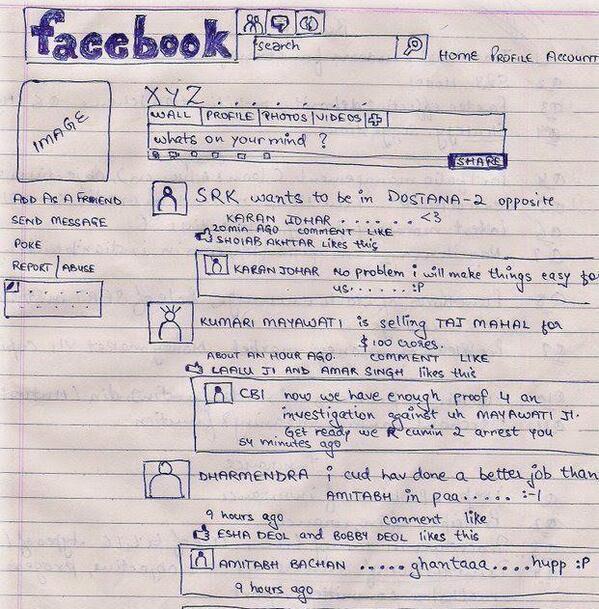 facebook
search
HOME PROFILE ACCOUNT
IMAGE
XYZ . . . . . . . . .
WALL PROFILE PHOTOS VIDEOS
whats on your mind ?
SHARE
ADD AS A FRIEND
SEND MESSAGE
POKE
REPORT | ABUSE
SRK wants to be in DOSTANA-2 opposite
KARAN JOHAR . . . . . . <3
20 min AGO COMMENT LIKE
SHOIAB AKHTAR likes this
KARAN JOHAR No problem i will make things easy for
us. . . . . . :P
KUMARI MAYAWATI is selling TAJ MAHAL for
$100 CROZES.
ABOUT AN HOUR AGO. COMMENT LIKE
LAALU JI AND AMAR SINGH likes this
CBI now we have enough proof 4 an
investigation against uh MAYAWATI JI.
Get ready we R cumin 2 arrest you
54 minutes ago
DHARMENDRA i cud hav done a better job than
AMITABH in paa. . . . . :-/
9 hours ago comment like
ESHA DEOL and BOBBY DEOL likes this
AMITABH BACHAN . . . . . ghantaaa. . . . hupp :P
9 hours ago